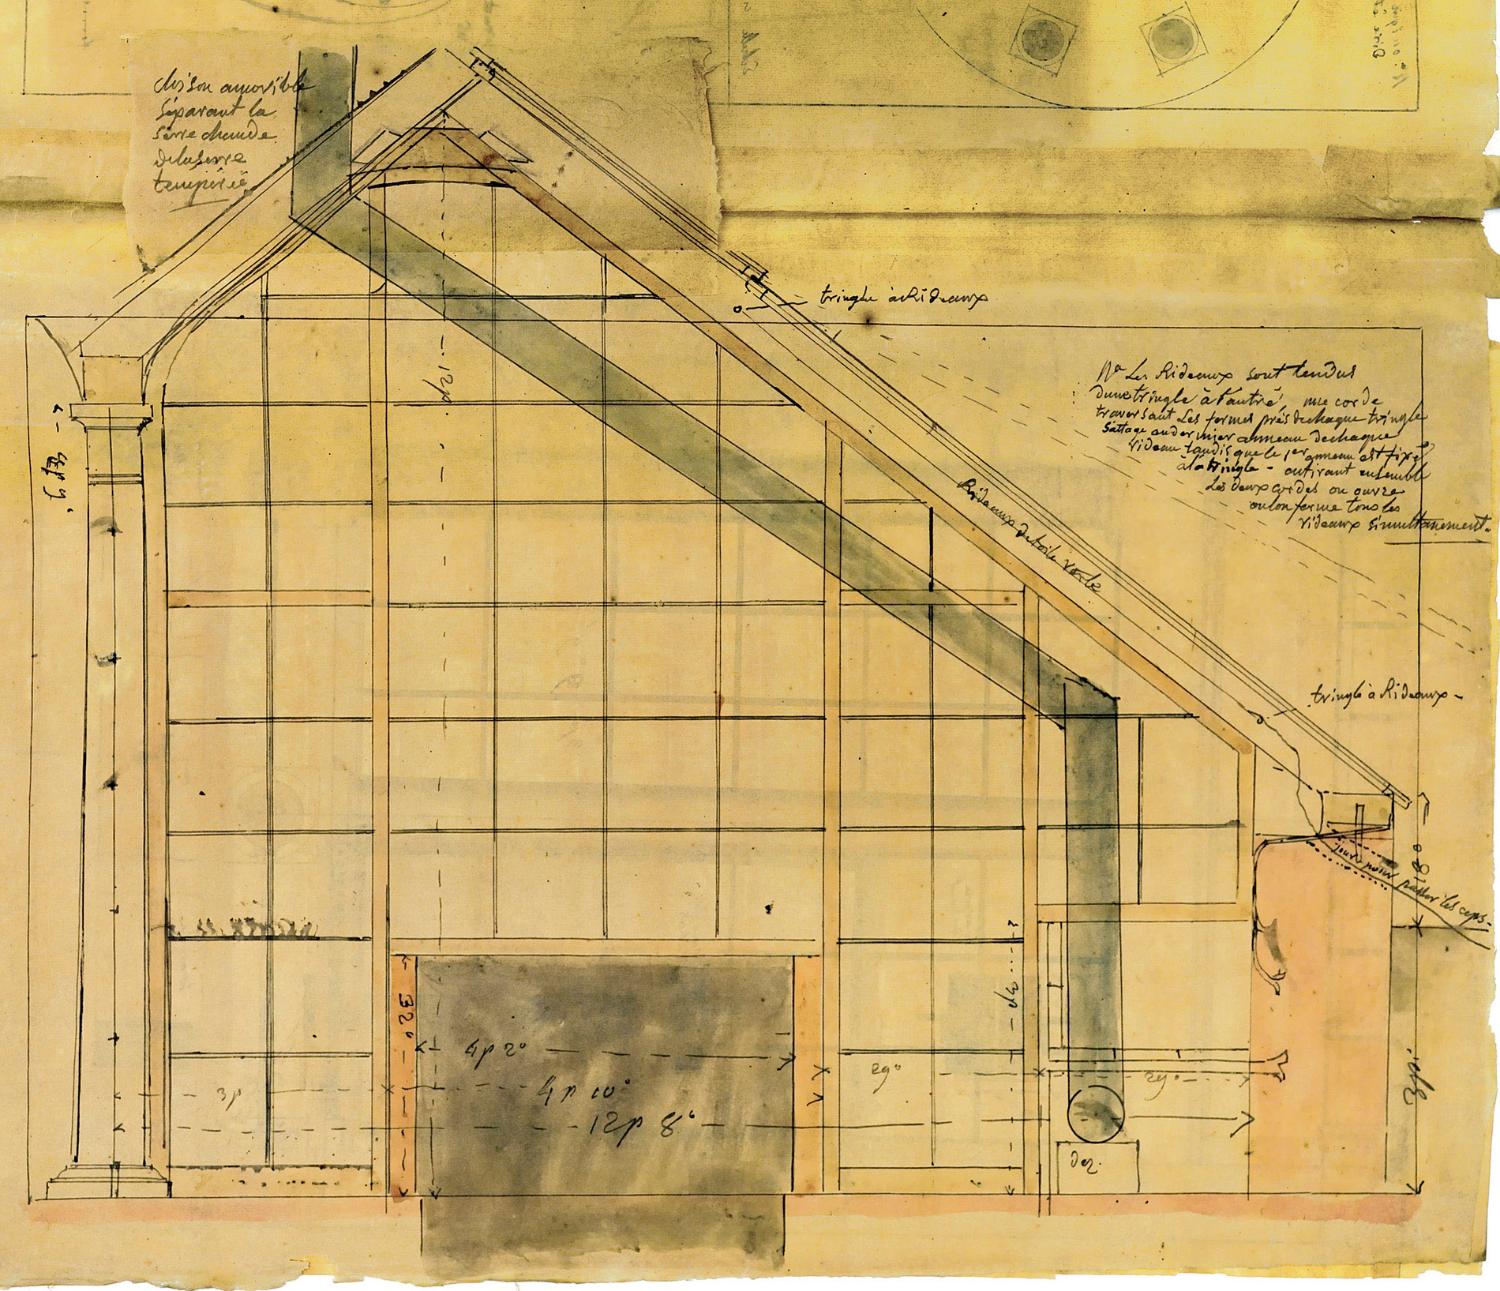 cloison amovible
séparant la
serre chaude
de la serre
tempérée
tringle à Rideaux
Na Les Rideaux sont tendus
d'une tringle à l'autre, une corde
traversant Les fermes près de chaque tringle
s'attage au dernier anneau de chaque
rideau tandis que le 1er anneau est fixé
à la tringle - en tirant ensemble
Les deux cordes on ouvre
ou l'on ferme tous les
rideaux simultanement.
12p.
Rideaux de toile verte
tringle à Rideaux -
jour pour passer les ceps -
18°
32°
4p 2°
4p 10°
12p 8°
3p
29°
29°
3pi.
dez.